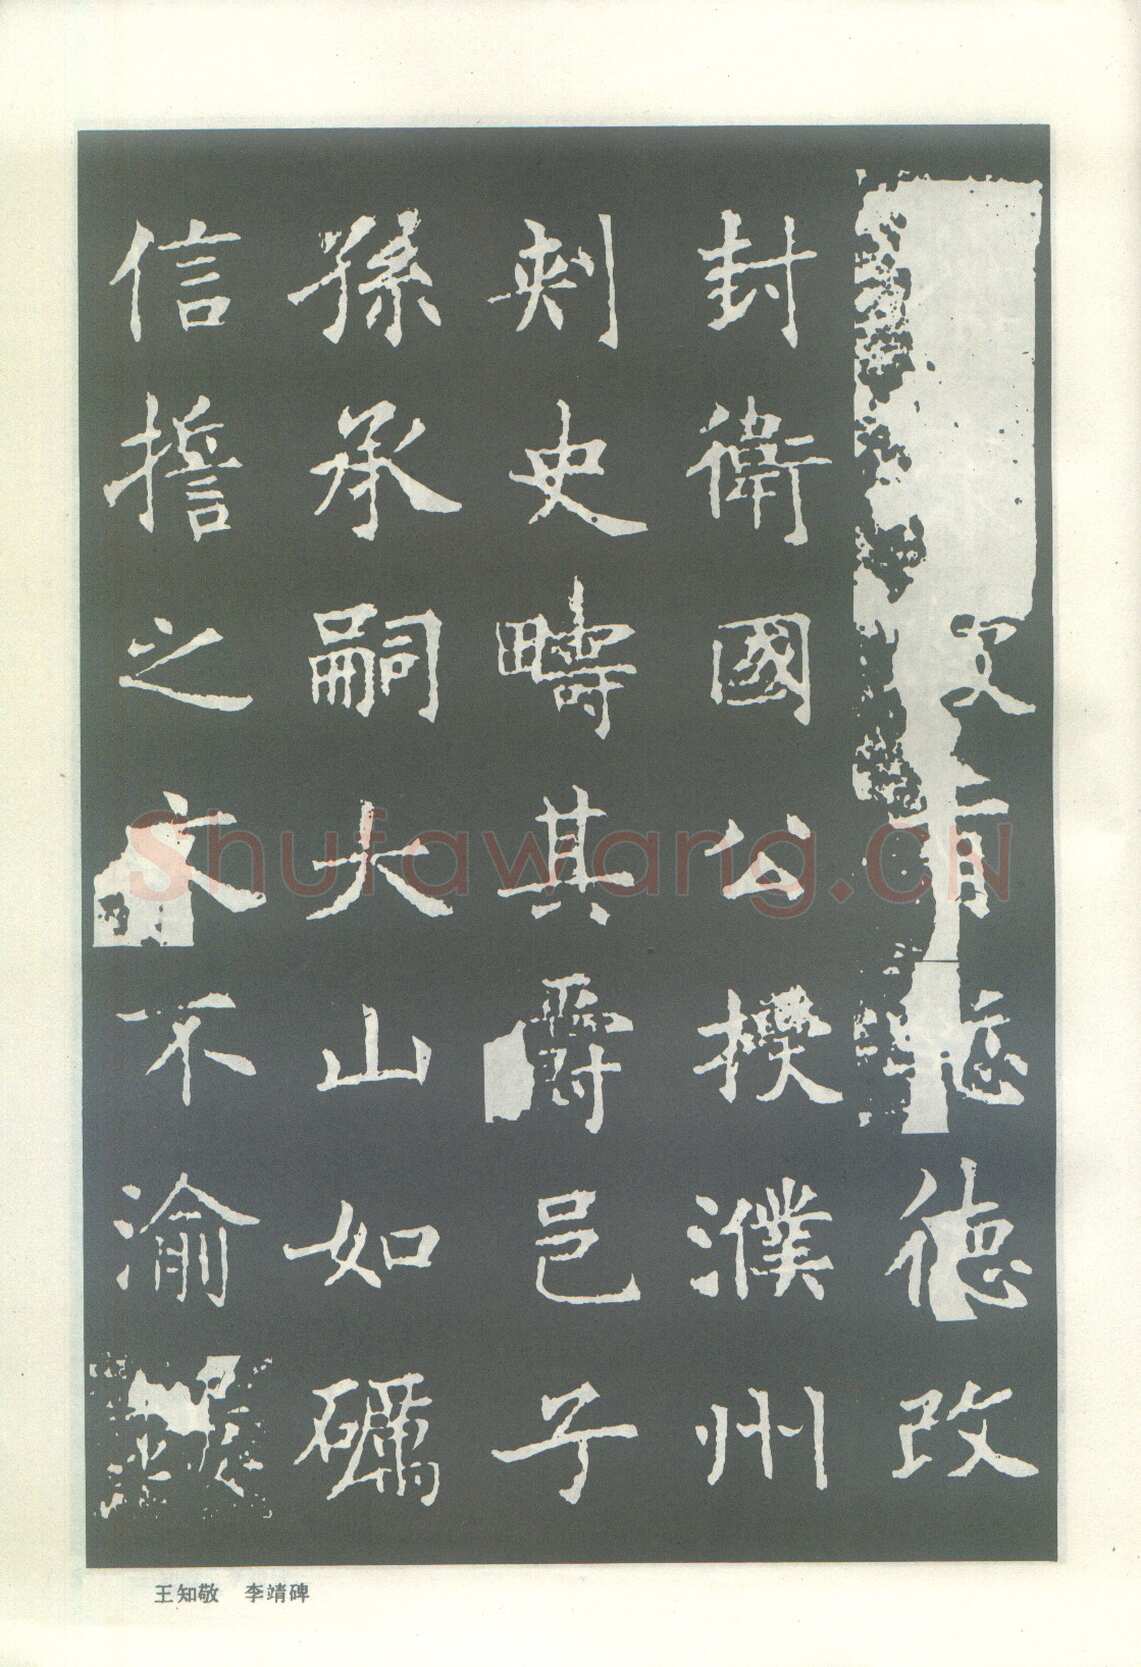 有德改
封衛國公授濮州
刺史疇其爵邑子
孫承嗣大山如礪
信誓之文不渝
王知敬 李靖碑
Shufawang.CN